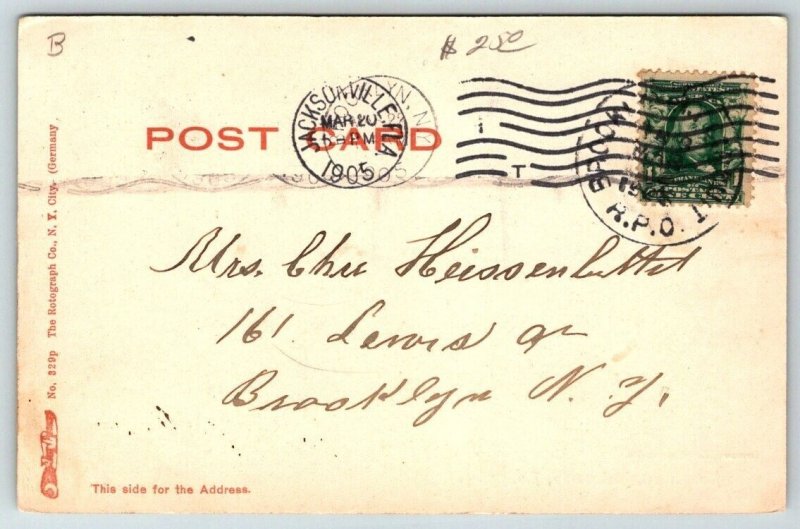 B
$ 2.50
POST CARD
JACKSONVILLE, FLA.
MAR 20
PM
1905
YN, N
T
BROOKLYN
R.P.O.
Mrs. Chr Heissenbuttel
161 Lewis av
Brooklyn N. Y.
This side for the Address.
No. 329p The Rotograph Co., N. Y. City. (Germany